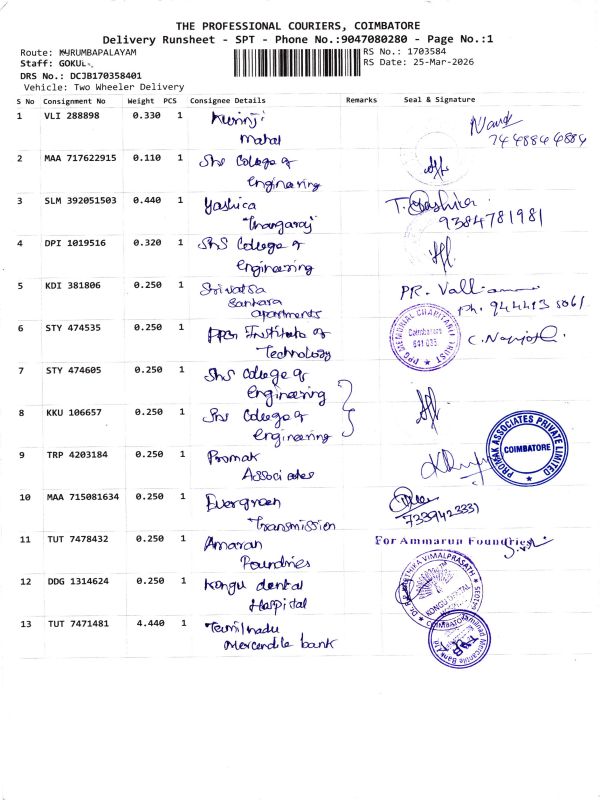 THE PROFESSIONAL COURIERS, COIMBATORE
Delivery Runsheet - SPT - Phone No.:9047080280 - Page No.:1
Route: KURUMBAPALAYAM
RS No.: 1703584
Staff: GOKUL
RS Date: 25-Mar-2026
DRS No.: DCJB170358401
Vehicle: Two Wheeler Delivery
S No Consignment No Weight PCS Consignee Details Remarks Seal & Signature
1 VLI 288898 0.330 1 Kurinji
Mahal
7448844884
2 MAA 717622915 0.110 1 SNS College of
Engineering
3 SLM 392051503 0.440 1 Yashica
Thangaraj
T.
9384781981
4 DPI 1019516 0.320 1 SNS College of
Engineering
5 KDI 381806 0.250 1 Srivatsa
Sankara
apartments
PR. Valliamm
Ph. 9444135061
6 STY 474535 0.250 1 PPG Institute of
Technology
PPG MEMORIAL CHARITABLE TRUST
Coimbatore
641 035
7 STY 474605 0.250 1 SNS College of
Engineering
8 KKU 106657 0.250 1 SNS College of
Engineering
9 TRP 4203184 0.250 1 Promak
Associates
PROMAK ASSOCIATES PRIVATE LIMITED
COIMBATORE
10 MAA 715081634 0.250 1 Evergreen
Transmission
7339423331
11 TUT 7478432 0.250 1 Amaran
Foundries
For Ammarun Foundries
12 DDG 1314624 0.250 1 Kongu dental
Hospital
KONGU DENTAL
13 TUT 7471481 4.440 1 Tamilnadu
Mercendile bank
COIMBATORE
Tamilnad Mercantile Bank